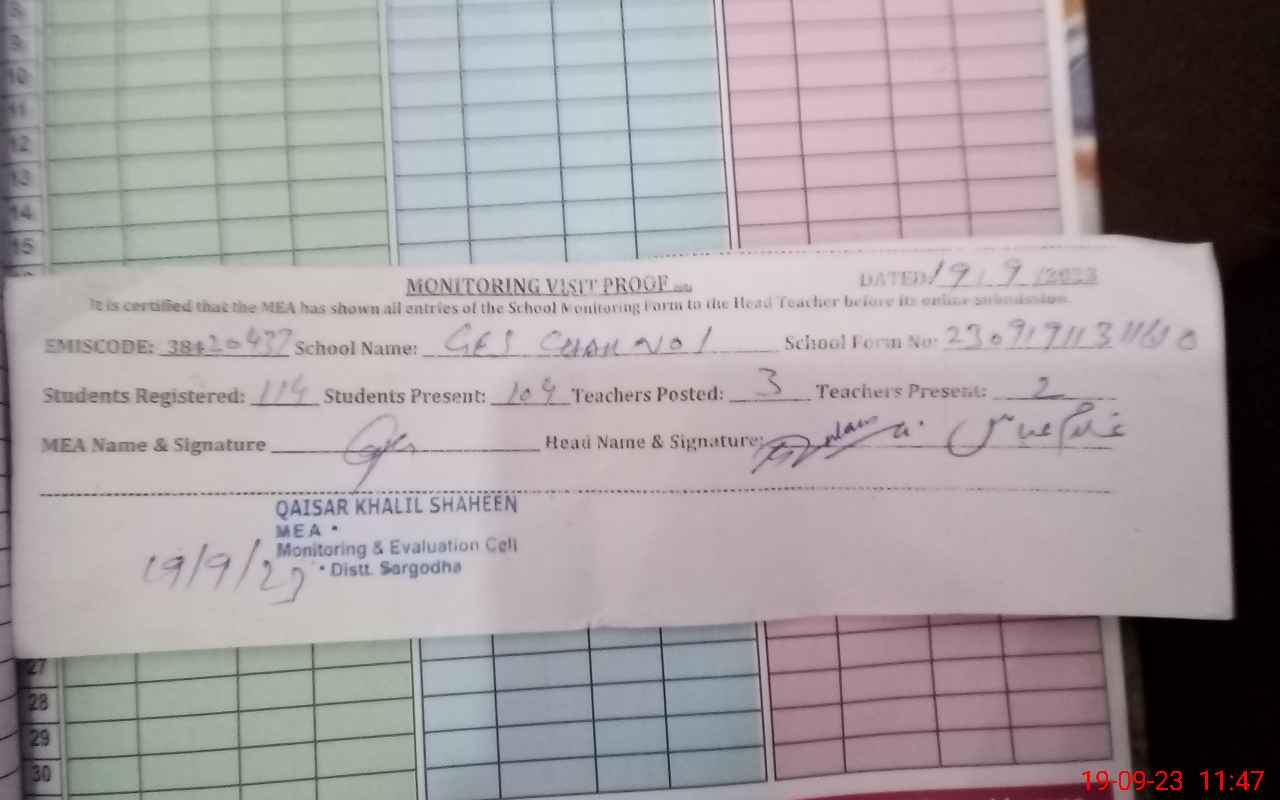 9
10
11
12
13
14
15
MONITORING VISIT PROOF
DATED 19/9/2023
It is certified that the MEA has shown all entries of the School Monitoring Form to the Head Teacher before its online submission.
EMISCODE: 38420437 School Name: GES CHAH NO 1 School Form No:
Students Registered: 114 Students Present: 104 Teachers Posted: 3 Teachers Present: 2
MEA Name & Signature Head Name & Signature:
QAISAR KHALIL SHAHEEN
MEA
Monitoring & Evaluation Cell
Distt. Sargodha
19/9/23
27
28
29
30
19-09-23 11:47